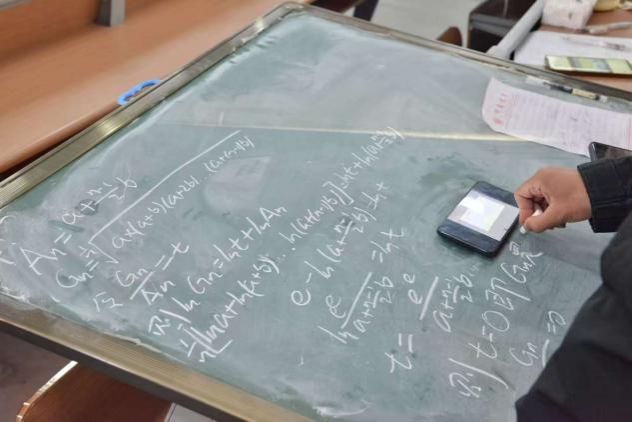 An = a + n-1/2 b
Gn = n√a(a+b)(a+2b)…(a+(n-1)b)
令 Gn/An = t
则 ln Gn = ln t + ln An
1/n [ln a + ln(a+b) … ln(a+(n-1)b)] = ln t + ln(a + n-1/2 b)
e - ln(a + n-1/2 b) = ln t
ln e^e/a + n-1/2 b = ln t
t = e^e/a + n-1/2 b
则 t = 0 即
Gn
= 0